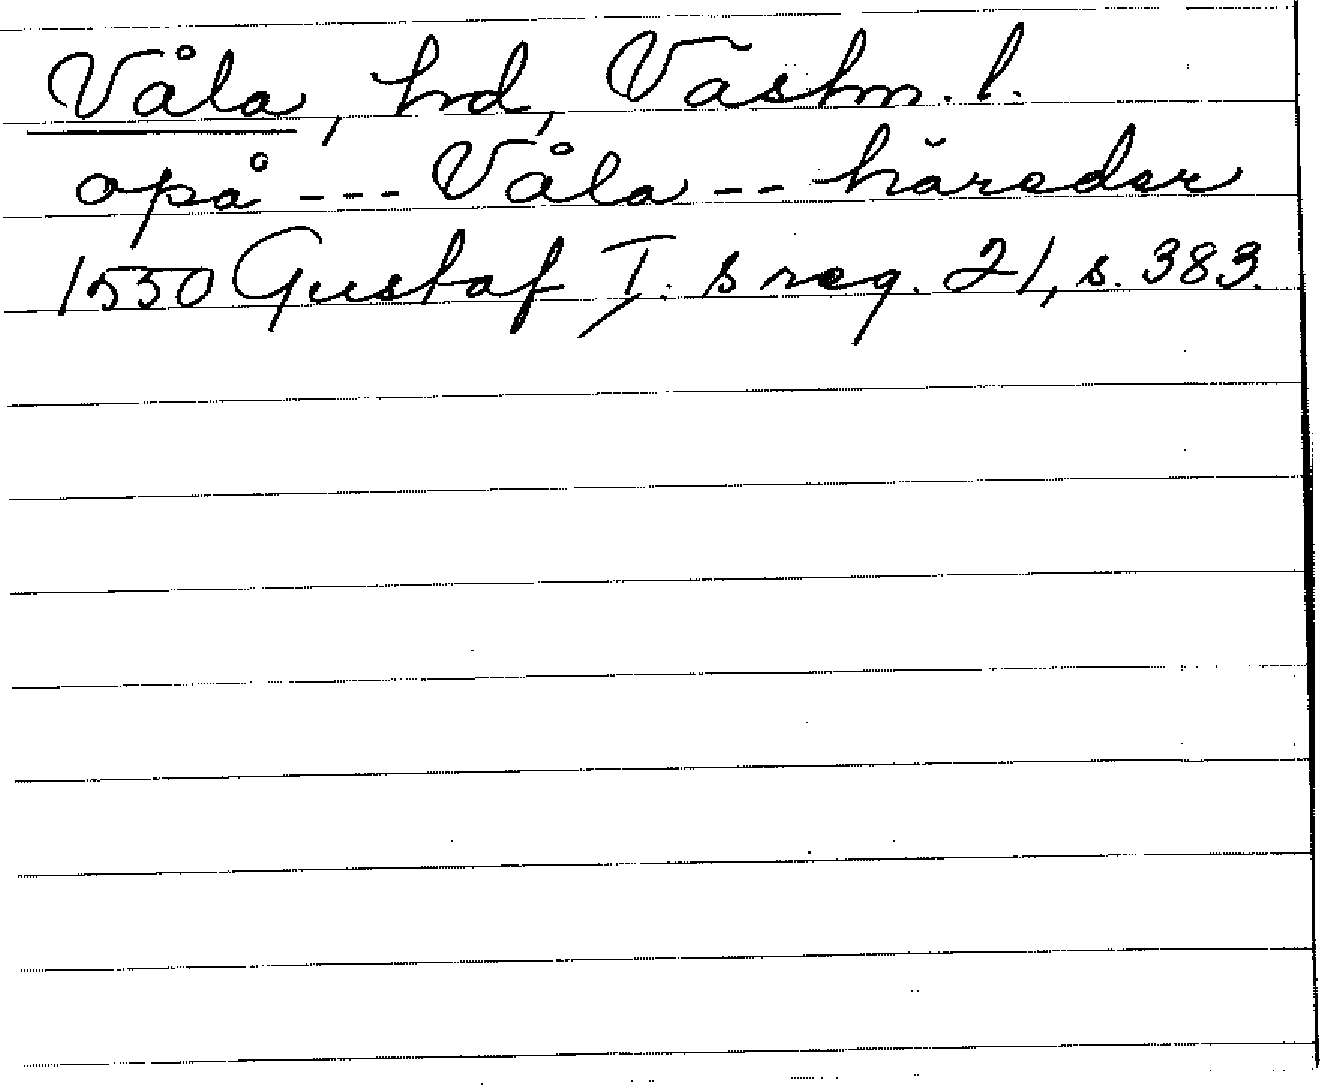 Våla, hd, Västm. l.
opå --- Våla -- häreder
1550 Gustaf I:s reg. 21, s. 383.